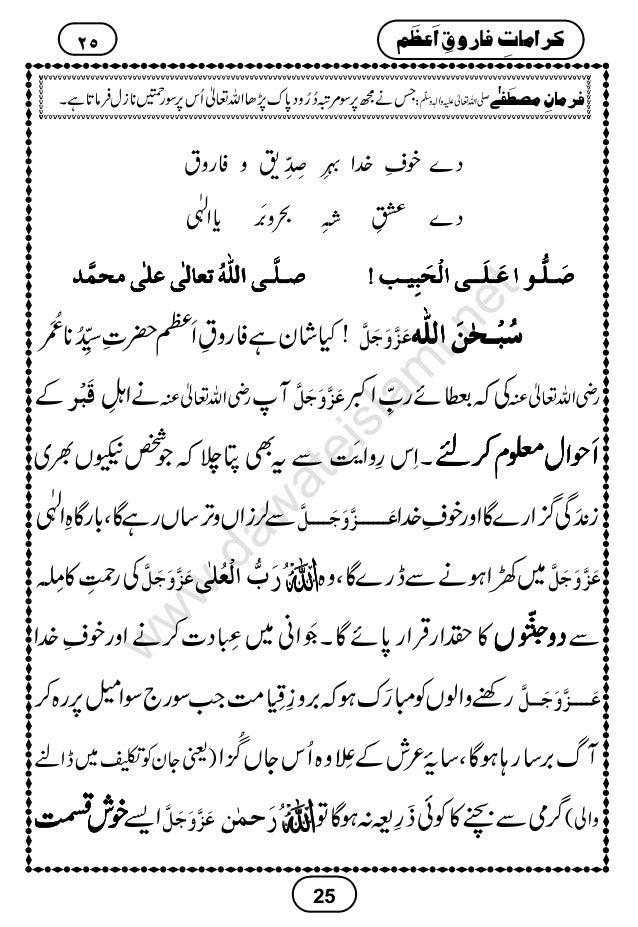 کراماتِ فاروقِ اَعظَم
۲۵
فرمانِ مصطَفٰے صلی اللہ تعالیٰ علیہ والہٖ وسلّم: جس نے مجھ پر سو مرتبہ دُرُود پاک پڑھا اللہ تعالیٰ اُس پر سو رحمتیں نازل فرماتا ہے۔
دے خوفِ خدا بہرِ صِدِّیق و فاروق
دے عشقِ شہِ بحروبَر یاالٰہی
صَلُّوا عَلَی الْحَبِیب! صلَّی اللہُ تعالٰی علٰی محمَّد
سُبْحٰنَ اللہ عَزَّوَجَلَّ! کیا شان ہے فاروقِ اَعظم حضرتِ سیِّدُنا عُمَر
رضی اللہ تعالیٰ عنہ کی کہ بعطائے ربِّ اکبر عَزَّوَجَلَّ آپ رضی اللہ تعالیٰ عنہ نے اہلِ قَبْر کے
اَحوال معلوم کر لئے۔ اِس رِوایَت سے یہ بھی پتا چلا کہ جو شخص نیکیوں بھری
زندَگی گزارے گا اور خوفِ خدا عَزَّوَجَلَّ سے لرزاں و ترساں رہے گا، بارگاہِ الٰہی
عَزَّوَجَلَّ میں کھڑا ہونے سے ڈرے گا، وہ اللہُ رَبُّ الْعُلٰی عَزَّوَجَلَّ کی رحمتِ کامِلہ
سے دو جنّتوں کا حقدار قرار پائے گا۔ جَوانی میں عِبادت کرنے اور خوفِ خدا
عَزَّوَجَلَّ رکھنے والوں کو مبارَک ہو کہ بروزِ قِیامت جب سورج سوا میل پر رہ کر
آگ برسا رہا ہو گا، سایۂ عرش کے عِلاوہ اُس جاں گُزا (یعنی جان کو تکلیف میں ڈالنے
والی) گرمی سے بچنے کا کوئی ذَرِیعہ نہ ہو گا تو اللہُ رَحمٰن عَزَّوَجَلَّ ایسے خوش قسمت
25
www.dawateislami.net